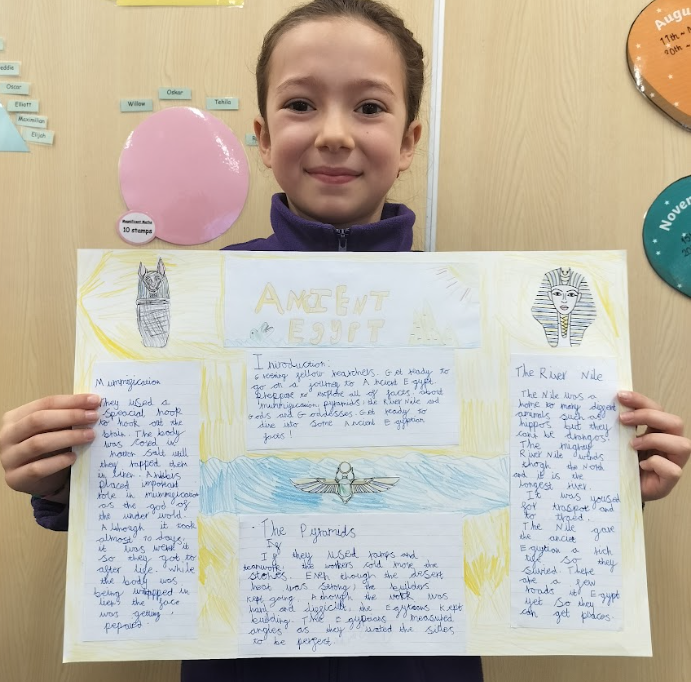 Augu
11th - 
30th -
Novem
eddie
Oscar
Elliott
Maximilian
Elijah
Willow
Oskar
Tahlia
10 stamps
ANCIENT
EGYPT
Introduction:
fellow searchers. Get ready to
go on a journey to Ancient Egypt
prepare to explore all of faces about
mummification, pyramids, the River Nile and
Gods and Goddesses. Get ready to
dive into some Ancient Egyptian
faces!
Mummification
They used a
speacial hook
to hook out the
brain. The body
was
salt until
they rapped them
in linen. Anubis
placed important
role in mummification
as the god of
the under world.
Although it took
almost 70 days,
it was worth it
so they got to
after life. While
the body was
being wrapped in
the face
was geting
The River Nile
The Nile was a
home to many different
animals such as
hippos but they
cant be
The mighty
River Nile winds
the North
and it is the
longest river.
It was
for trasport and
to
The Nile gave
the ancint
Egyptian a rich
life so they
There
are a few
roads in Egypt
yet so they
can get places.
The Pyramids
If they used ramps and
teamwork, the workers could move the
stones. Even though the desert
heat was strong, the builders
kept going. Although the work was
hard and the Egyptians kept
building. The Egyptians measured
angles as they wanted the sides
to be perfect.